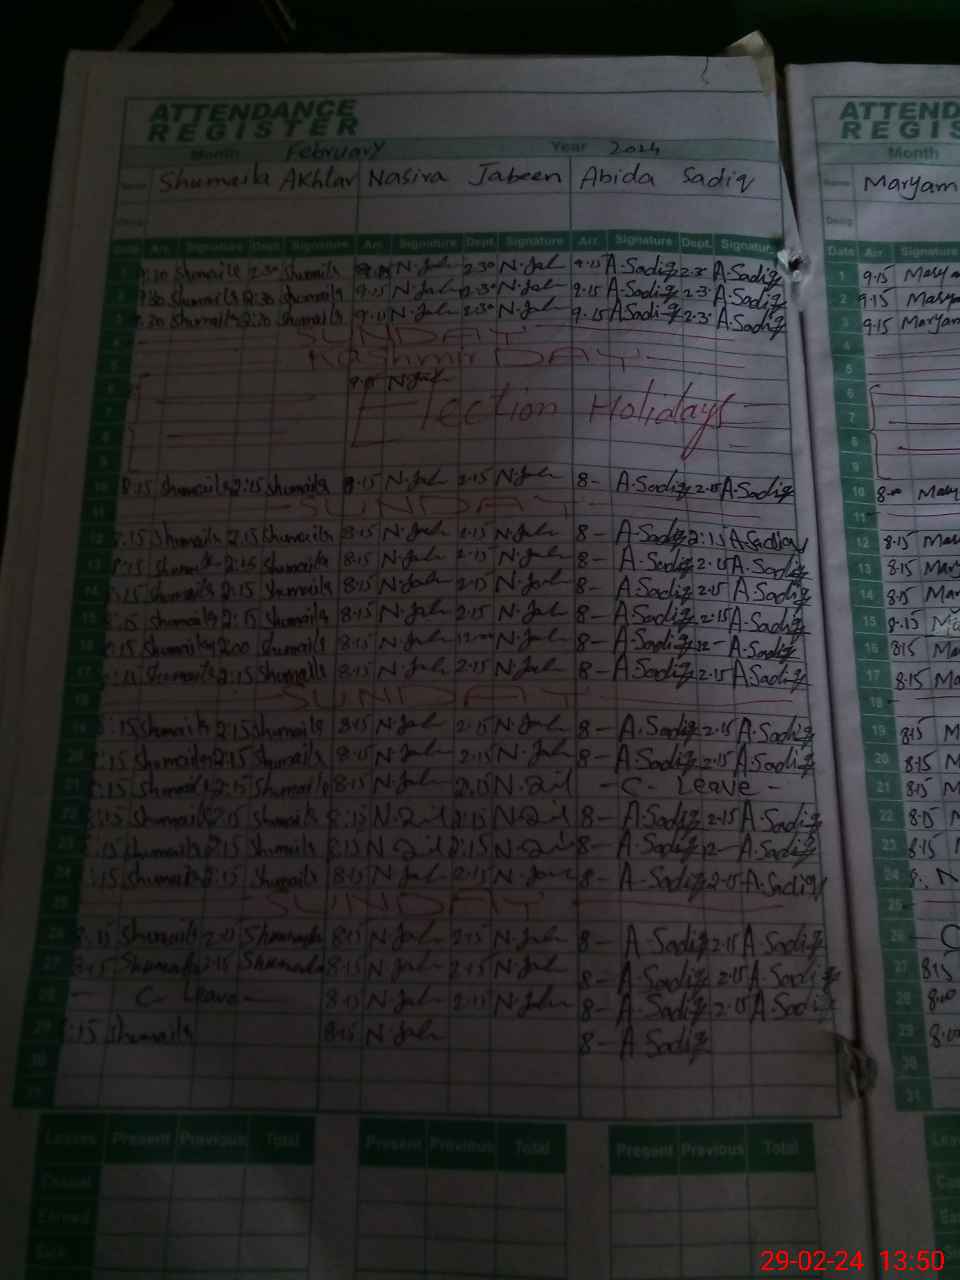 ATTENDANCE REGISTER
ATTEND
REGIS
Month February Year 2024
Month
Name Shumaila Akhtar Nasira Jabeen Abida Sadiq
Name Maryam
Desig
Date Arr. Signature Dept. Signature Arr. Signature Dept. Signature Arr. Signature Dept. Signatur
Date Arr Signature
1 9:30 Shumaila 2:30 Shumaila 9.15 N.Jab 2.30 N.Jab 9.15 A.Sadiq 2.3 A.Sadiq
1 9.15 Marya
2 9:30 Shumaila 2:30 Shumaila 9.15 N.Jab 2.30 N.Jab 9.15 A.Sadiq 2.3 A.Sadiq
2 9.15 Marya
3 9.30 Shumaila 2:30 Shumaila 9.15 N.Jab 2.30 N.Jab 9.15 A.Sadiq 2.3 A.Sadiq
3 9.15 Maryam
4 SUNDAY
4
5 Kashmir DAY
5
6 9.15 N.Jab
6
7 Election Holidays
7
8
8
9
9
10 8:15 Shumaila 2:15 Shumaila 8.15 N.Jab 2.15 N.Jab 8- A.Sadiq 2.15 A.Sadiq
10 8- Mary
11 SUNDAY
11
12 8.15 Shumaila 2.15 Shumaila 8.15 N.Jab 2.15 N.Jab 8- A.Sadiq 2:15 A.Sadiq
12 8.15 Mar
13 8.15 2:15 Shumaila 8.15 N.Jab 2.15 N.Jab 8- A.Sadiq 2.15 A.Sadiq
13 8.15 Mar
14 8:15 Shumaila 2:15 Shumaila 8.15 N.Jab 2.15 N.Jab 8- A.Sadiq 2.15 A.Sadiq
14 8.15 Mar
15 8:15 Shumaila 2:15 Shumaila 8.15 N.Jab 2.15 N.Jab 8- A.Sadiq 2.15 A.Sadiq
15 8.15 Ma
16 8:15 Shumaila Shumaila 8.15 N.Jab N.Jab 8- A.Sadiq 12- A.Sadiq
16 8.15 Ma
17 8:15 Shumaila 2:15 Shumaila 8.15 N.Jab 2.15 N.Jab 8- A.Sadiq 2.15 A.Sadiq
17 8.15 Ma
18 SUNDAY
18
19 8:15 Shumaila 2:15 Shumaila 8.15 N.Jab 2.15 N.Jab 8- A.Sadiq 2.15 A.Sadiq
19 8.15 M
20 8:15 Shumaila 2:15 Shumaila 8.15 N.Jab 2.15 N.Jab 8- A.Sadiq 2.15 A.Sadiq
20 8.15 M
21 8:15 Shumaila 2:15 Shumaila 8.15 N.Jab 2.15 - C. Leave -
21 8.15 M
22 8:15 Shumaila 2:15 Shumaila 8:15 2:15 8- A.Sadiq 2.15 A.Sadiq
22 8.15 M
23 8:15 Shumaila 2:15 Shumaila 8:15 2:15 8- A.Sadiq 12- A.Sadiq
23 8.15
24 8:15 Shumaila 2:15 Shumaila 8.15 N.Jab 2.15 8- A-Sadiq 2.15 A.Sadiq
24
25 SUNDAY
25
26 8.15 Shumaila 2.15 Shumaila 8.15 N.Jab 2.15 N.Jab 8- A.Sadiq 2.15 A.Sadiq
26 C
27 8.15 Shumaila 2.15 Shumaila 8.15 N.Jab 2.15 N.Jab 8- A.Sadiq 2.15 A.Sadiq
27 8.15
28 - C- Leave - 8.15 N.Jab 2.15 N.Jab 8- A.Sadiq 2.15 A.Sadiq
28 8.00
29 8:15 Shumaila 8.15 N.Jab 8- A.Sadiq
29 8:00
30
30
31
31
Leaves Present Previous Total Present Previous Total Present Previous Total
Casual
Earned
Sick
29-02-24 13:50